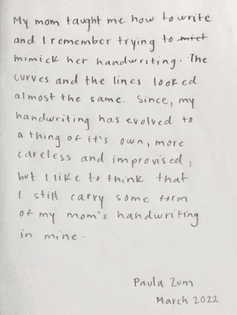 My mom taught me how to write
and I remember trying to
mimick her handwriting. The
curves and the lines looked
almost the same. Since, my
handwriting has evolved to
a thing of it's own, more
careless and improvised,
but I like to think that
I still carry some form
of my mom's handwriting
in mine.
Paula Zum
March 2022